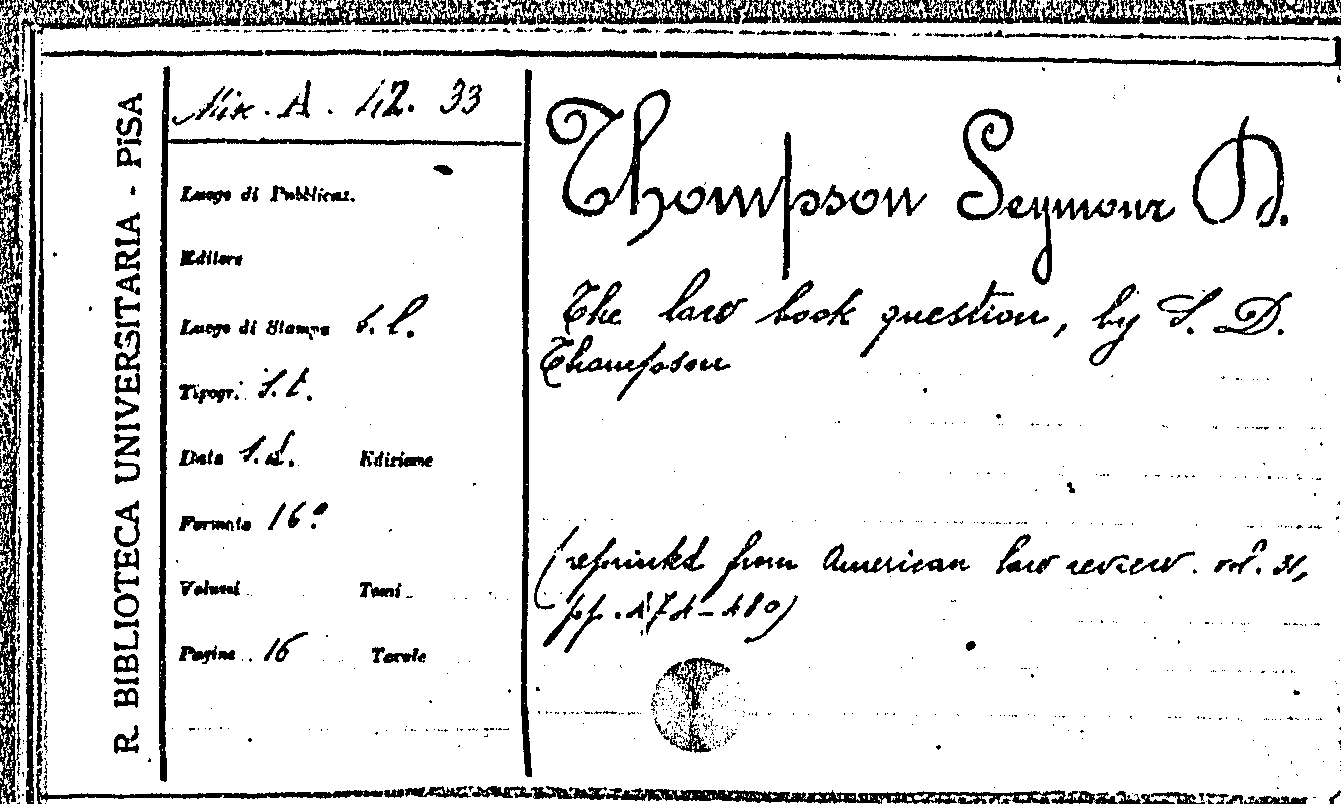 R. BIBLIOTECA UNIVERSITARIA - PISA
Mix. A. 42. 33
Luogo di Pubblicaz.
Editore
Luogo di Stampa s. l.
Tipogr. s. t.
Data s. d. Edizione
Formato 16°
Volumi Tomi
Pagine 16 Tavole
Thompson Seymour D.
The law book question, by S. D.
Thompson
(reprinted from American law review. vol. 31,
pp. 474-480)